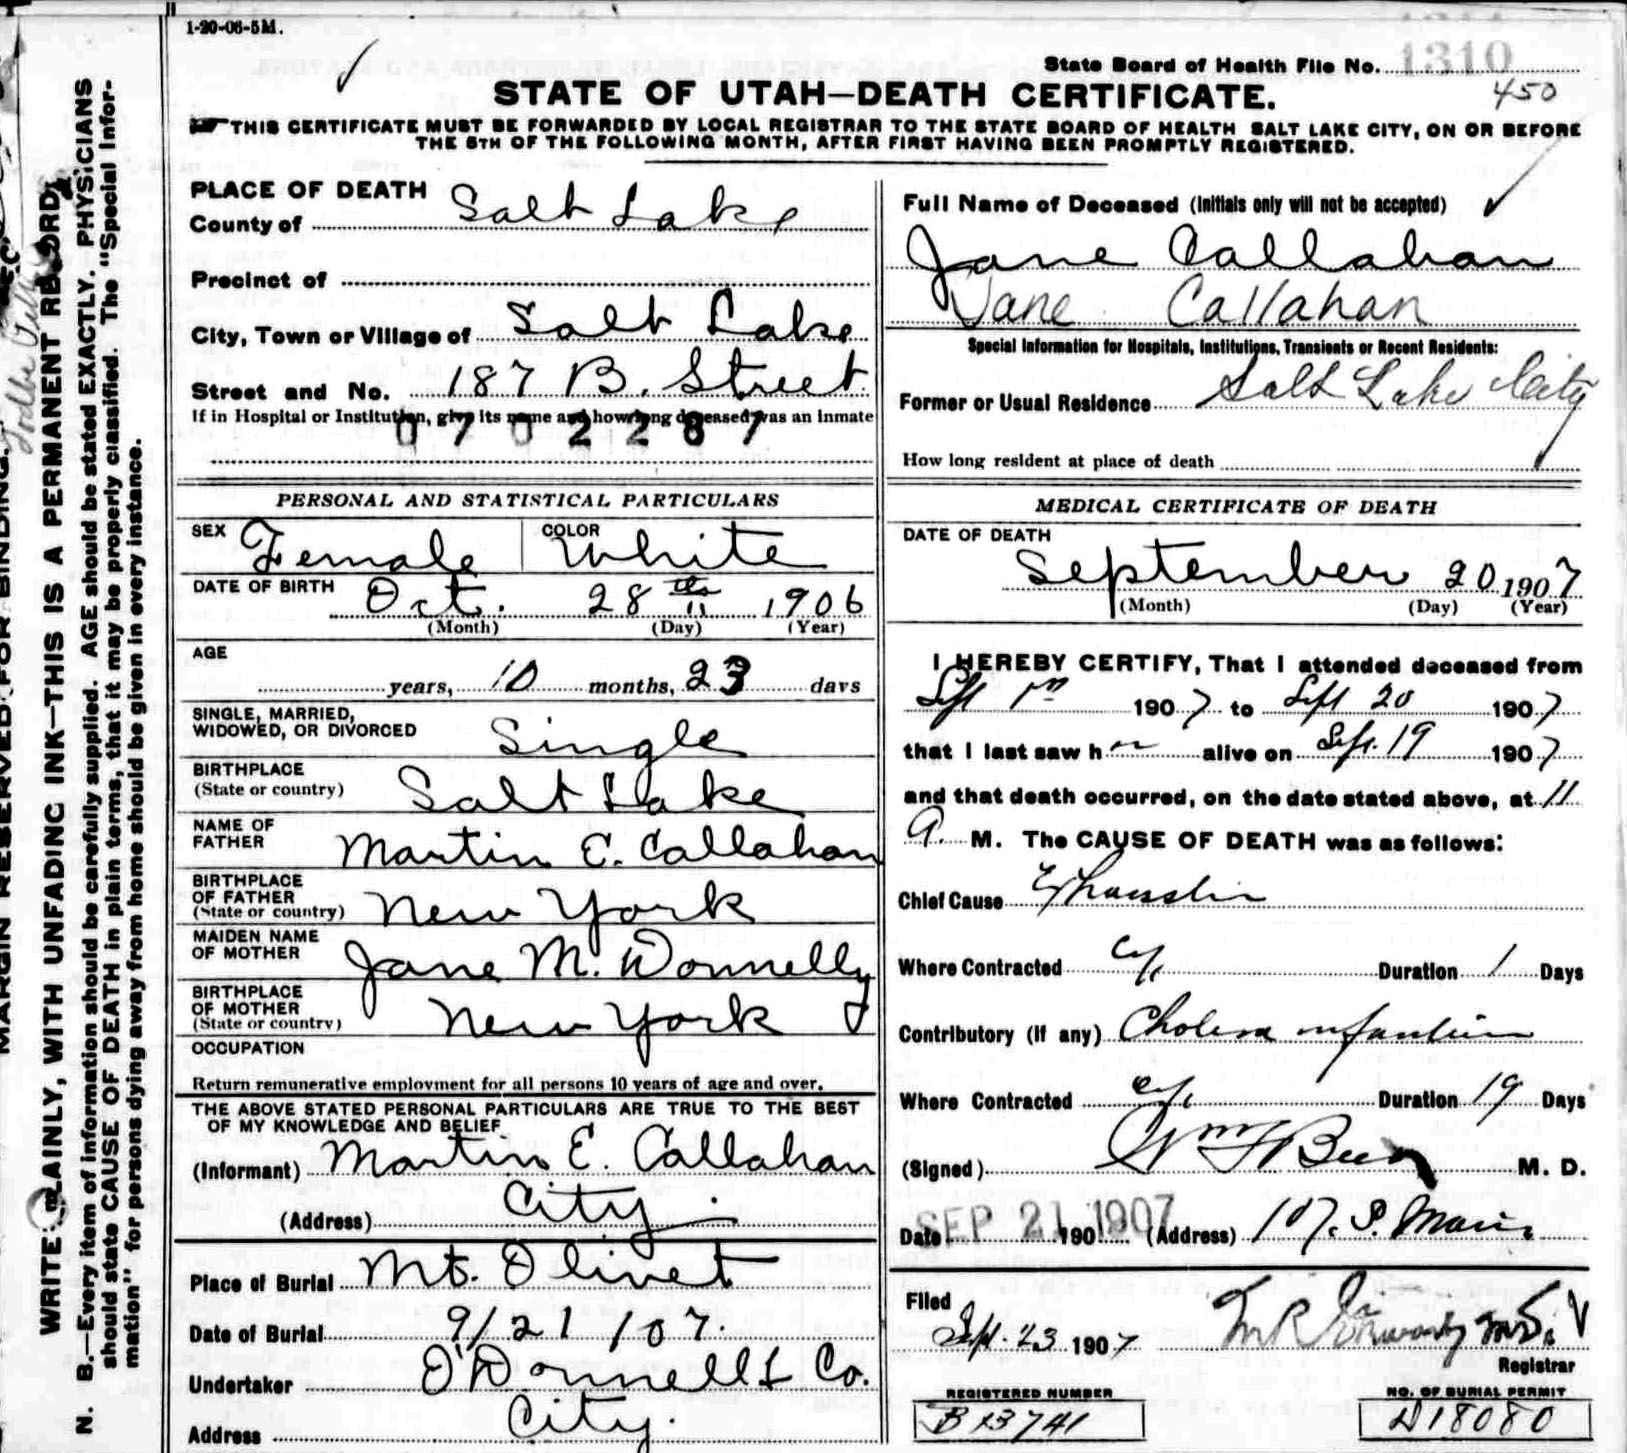 1-20-06-5M.
State Board of Health File No. 1310
450
STATE OF UTAH—DEATH CERTIFICATE.
THIS CERTIFICATE MUST BE FORWARDED BY LOCAL REGISTRAR TO THE STATE BOARD OF HEALTH SALT LAKE CITY, ON OR BEFORE
THE 5TH OF THE FOLLOWING MONTH, AFTER FIRST HAVING BEEN PROMPTLY REGISTERED.
MARGIN RESERVED FOR BINDING.
WRITE PLAINLY, WITH UNFADING INK—THIS IS A PERMANENT RECORD.
N. B.—Every item of information should be carefully supplied. AGE should be stated EXACTLY. PHYSICIANS
should state CAUSE OF DEATH in plain terms, that it may be properly classified. The "Special Infor-
mation" for persons dying away from home should be given in every instance.
PLACE OF DEATH
County of Salt Lake
Precinct of
City, Town or Village of Salt Lake
Street and No. 187 B. Street
If in Hospital or Institution, give its name and how long deceased was an inmate
0702287
PERSONAL AND STATISTICAL PARTICULARS
SEX Female COLOR White
DATE OF BIRTH Oct. 28th 1906
(Month) (Day) (Year)
AGE
years, 10 months, 23 days
SINGLE, MARRIED,
WIDOWED, OR DIVORCED Single
BIRTHPLACE
(State or country) Salt Lake
NAME OF
FATHER Martin E. Callahan
BIRTHPLACE
OF FATHER
(State or country) New York
MAIDEN NAME
OF MOTHER Jane M. Donnelly
BIRTHPLACE
OF MOTHER
(State or country) New York
OCCUPATION
Return remunerative employment for all persons 10 years of age and over.
THE ABOVE STATED PERSONAL PARTICULARS ARE TRUE TO THE BEST
OF MY KNOWLEDGE AND BELIEF
(Informant) Martin E. Callahan
(Address) City
Place of Burial Mt. Olivet
Date of Burial 9/21/07.
Undertaker O'Donnell & Co.
Address City.
Full Name of Deceased (Initials only will not be accepted)
Jane Callahan
Jane Callahan
Special Information for Hospitals, Institutions, Transients or Recent Residents:
Former or Usual Residence Salt Lake City
How long resident at place of death
MEDICAL CERTIFICATE OF DEATH
DATE OF DEATH
September 20 1907
(Month) (Day) (Year)
I HEREBY CERTIFY, That I attended deceased from
Sept 1st 1907 to Sept 20 1907
that I last saw her alive on Sept. 19 1907
and that death occurred, on the date stated above, at 11
A. M. The CAUSE OF DEATH was as follows:
Chief Cause Exhaustion
Where Contracted City Duration 1 Days
Contributory (if any) Cholera infantum
Where Contracted City Duration 19 Days
(Signed) Wm F Beer M. D.
Date SEP 21 1907 190 (Address) 107. S. Main
Filed
Sept. 23 1907
Registrar
REGISTERED NUMBER
B 13741
NO. OF BURIAL PERMIT
D18080